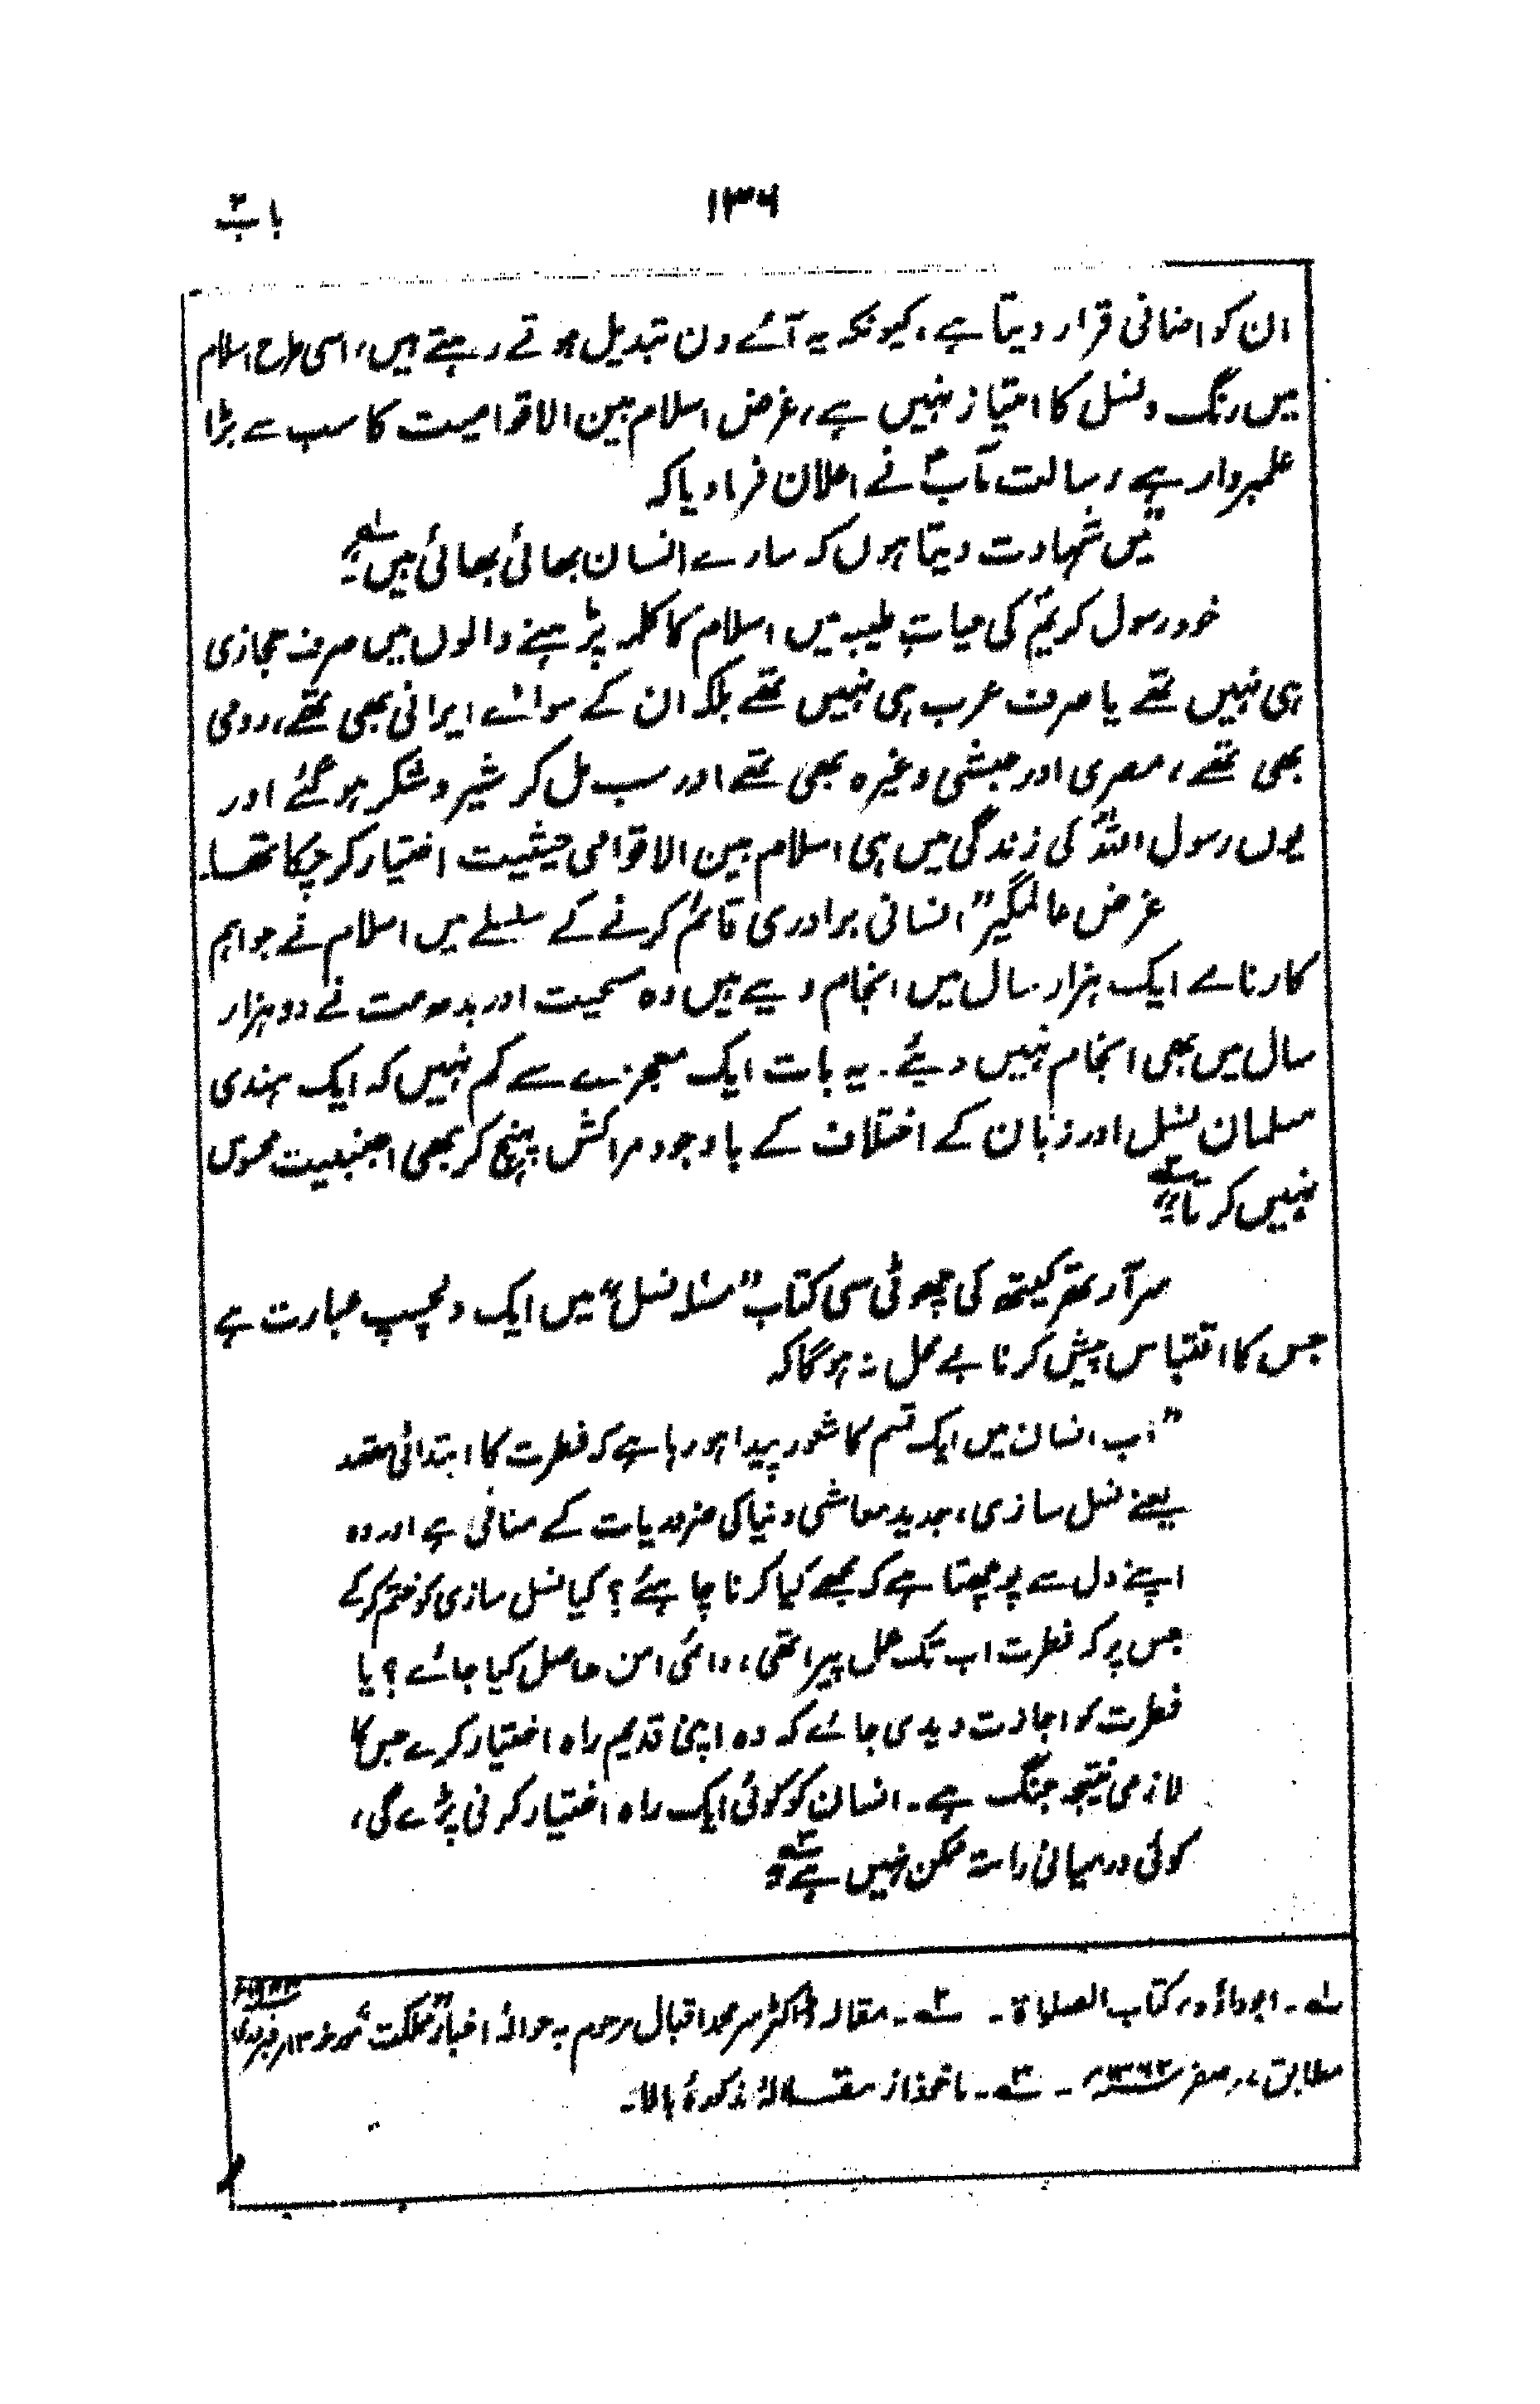 ۱۳۶
باب ۳
ان کو اضافی قرار دیتا ہے، کیونکہ یہ آئے دن تبدیل ہوتے رہتے ہیں، اسی طرح اسلام
میں رنگ و نسل کا امتیاز نہیں ہے، غرض اسلام بین الاقوامیت کا سب سے بڑا
علمبردار ہے رسالت مآبؐ نے اعلان فرما دیا کہ
"میں شہادت دیتا ہوں کہ سارے انسان بھائی بھائی ہیں"۔ ۱؎
خود رسول کریمؐ کی حیاتِ طیبہ میں اسلام کا کلمہ پڑھنے والوں میں صرف حجازی
ہی نہیں تھے یا صرف عرب ہی نہیں تھے بلکہ ان کے سوائے ایرانی بھی تھے، رومی
بھی تھے، مصری اور حبشی وغیرہ بھی تھے اور سب مل کر شیر و شکر ہو گئے اور
یوں رسول اللہؐ کی زندگی میں ہی اسلام بین الاقوامی حیثیت اختیار کر چکا تھا۔
غرض عالمگیر "انسانی برادری قائم کرنے کے سلسلے میں اسلام نے جو اہم
کارنامے ایک ہزار سال میں انجام دیے ہیں وہ مسیحیت اور بدھ مت نے دو ہزار
سال میں بھی انجام نہیں دیئے۔ یہ بات ایک معجزے سے کم نہیں کہ ایک ہندی
مسلمان نسل اور زبان کے اختلاف کے باوجود مراکش پہنچ کر بھی اجنبیت محسوس
نہیں کرتا"۔ ۲؎
سر آرتھر کیتھ کی چھوٹی سی کتاب "مسئلہ نسل" میں ایک دلچسپ عبارت ہے
جس کا اقتباس پیش کرنا بے محل نہ ہوگا کہ
"اب انسان میں ایک قسم کا شعور پیدا ہو رہا ہے کہ فطرت کا ابتدائی مقصد
یعنے نسل سازی، جدید معاشی دنیا کی ضروریات کے منافی ہے اور وہ
اپنے دل سے پوچھتا ہے کہ مجھے کیا کرنا چاہئے؟ کیا نسل سازی کو ختم کر کے
جس پر کہ فطرت اب تک عمل پیرا تھی، دائمی امن حاصل کیا جائے؟ یا
فطرت کو اجازت دیدی جائے کہ وہ اپنی قدیم راہ اختیار کرے جس کا
لازمی نتیجہ جنگ ہے۔ انسان کو کوئی ایک راہ اختیار کرنی پڑے گی،
کوئی درمیانی راستہ ممکن نہیں ہے"۔ ۳؎
۱؎۔ ابوداؤد، کتاب الصلواۃ۔ ۲؎۔ مقالہ ڈاکٹر سر محمد اقبال مرحوم بہ حوالۂ اخبار "مملکت" مورخہ ۱۳؍ فبروری
مطابق ۷؍ صفر ۱۳۶۳ھ۔ ۳؎۔ ماخوذ از مقالۂ مذکورۂ بالا۔